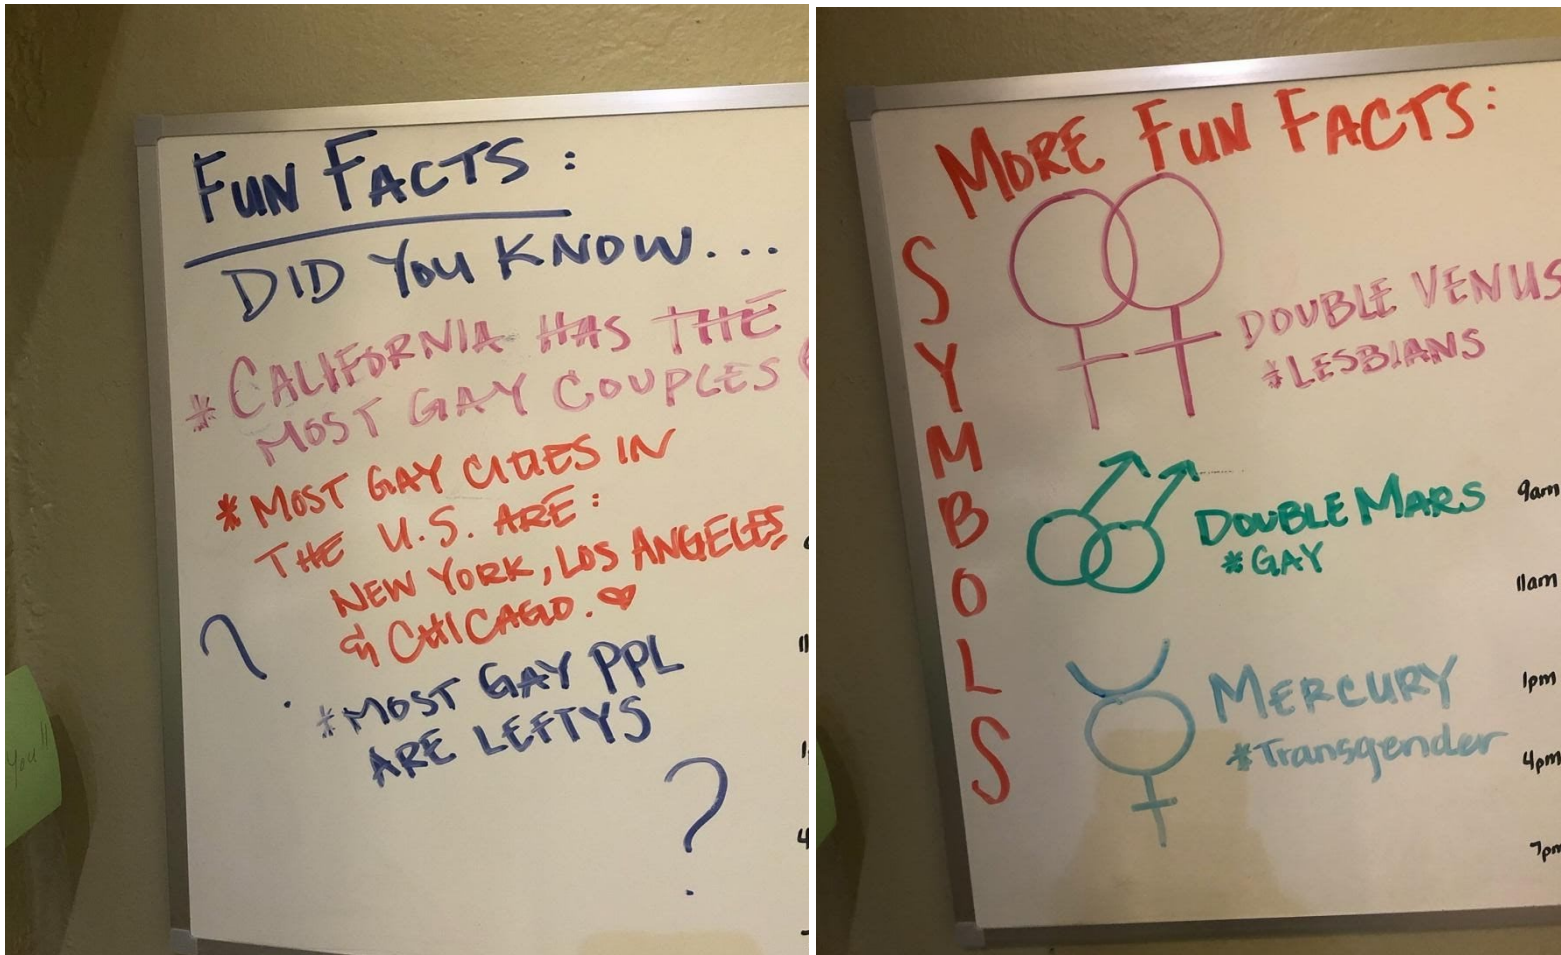 FUN FACTS:
DID YOU KNOW...
* CALIFORNIA HAS THE
MOST GAY COUPLES (
* MOST GAY CITIES IN
THE U.S. ARE:
NEW YORK, LOS ANGELES
& CHICAGO. ♥
?
* MOST GAY PPL
ARE LEFTYS
?
You!!
MORE FUN FACTS:
SYMBOLS
DOUBLE VENUS
*LESBIANS
DOUBLE MARS
*GAY
MERCURY
*Transgender
9am
11am
1pm
4pm
7pm